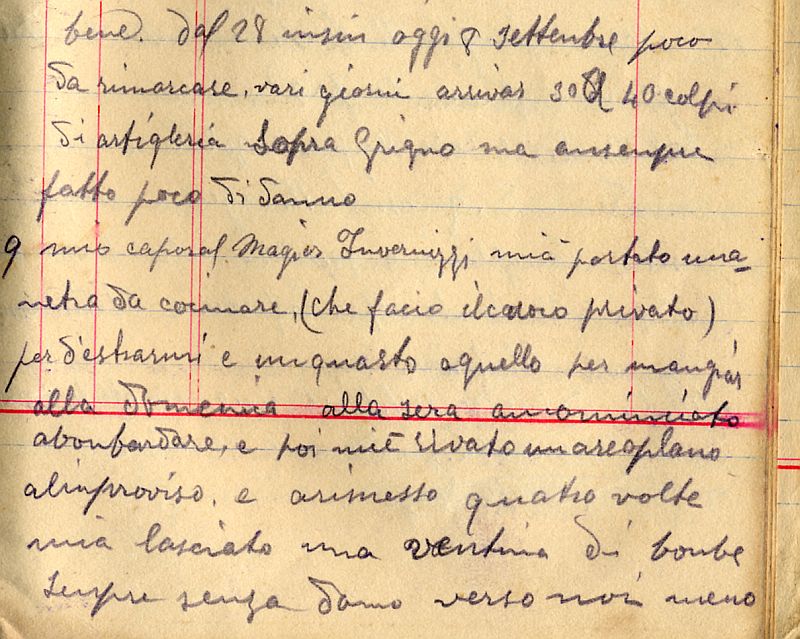 bene. dal 28 insin oggi 8 settenbre poco
da rimarcare, vari giorni arrivar 30 40 colpi
di artigleria sopra Grigno ma ansenpre
fatto poco di danno
9 mio caporal Magior Invernizzi mià portato una
netra da cocinare, (che facio il cuoco privato)
per destrarmi e unquarto aquello per mangiar
alla domenica alla sera ancominciato
abonbardare, e poi miè rivato unareoplano
alinproviso, e arimesso quatro volte
mia lasciato una ventina di bonbe
senpre senza dano verso noi meno